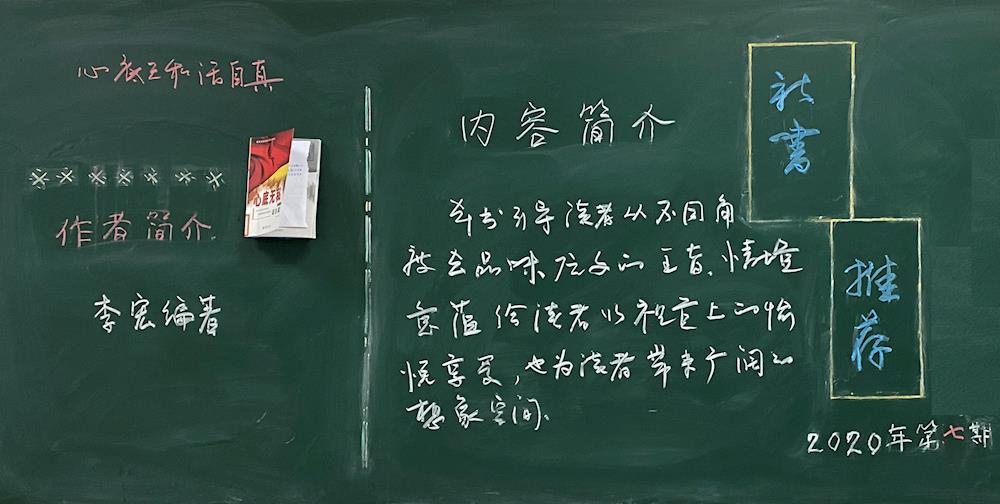 心底无私话自真
******* 
作者简介
李宏编著
心底无私
内容简介
本书引导读者从不同角
度去品味原文的主旨、情境
意蕴给读者以视觉上的愉
悦享受，也为读者带来广阔的
想象空间。
新書
推荐
2020年第七期